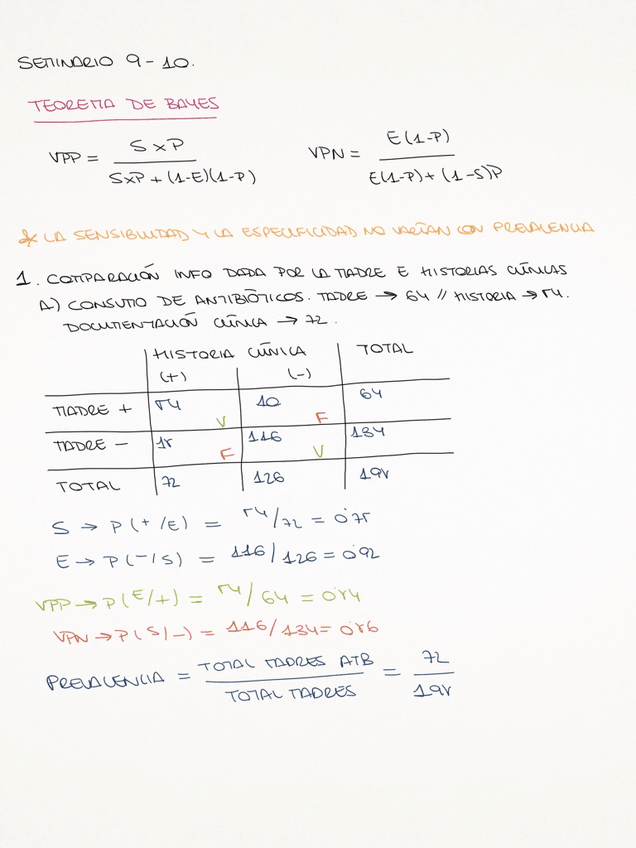 SEMINARIO 9-10.
TEOREMA DE BAYES
VPP = SxP / SxP + (1-E)(1-P)    VPN = E(1-P) / E(1-P) + (1-S)P
* LA SENSIBILIDAD Y LA ESPECIFICIDAD NO VARÍAN CON PREVALENCIA
1. COMPARACIÓN INFO DADA POR LA MADRE E HISTORIAS CLÍNICAS
A) CONSUMO DE ANTIBIÓTICOS. MADRE → 64 // HISTORIA → 54.
DOCUMENTACIÓN CLÍNICA → 72.
HISTORIA CLÍNICA TOTAL
(+) (-)
MADRE + 54 V 10 F 64
MADRE - 18 F 116 V 134
TOTAL 72 126 198
S → P(+/E) = 54/72 = 0'75
E → P(-/S) = 116/126 = 0'92
VPP → P(E/+) = 54/64 = 0'84
VPN → P(S/-) = 116/134 = 0'86
PREVALENCIA = TOTAL MADRES ATB / TOTAL MADRES = 72 / 198